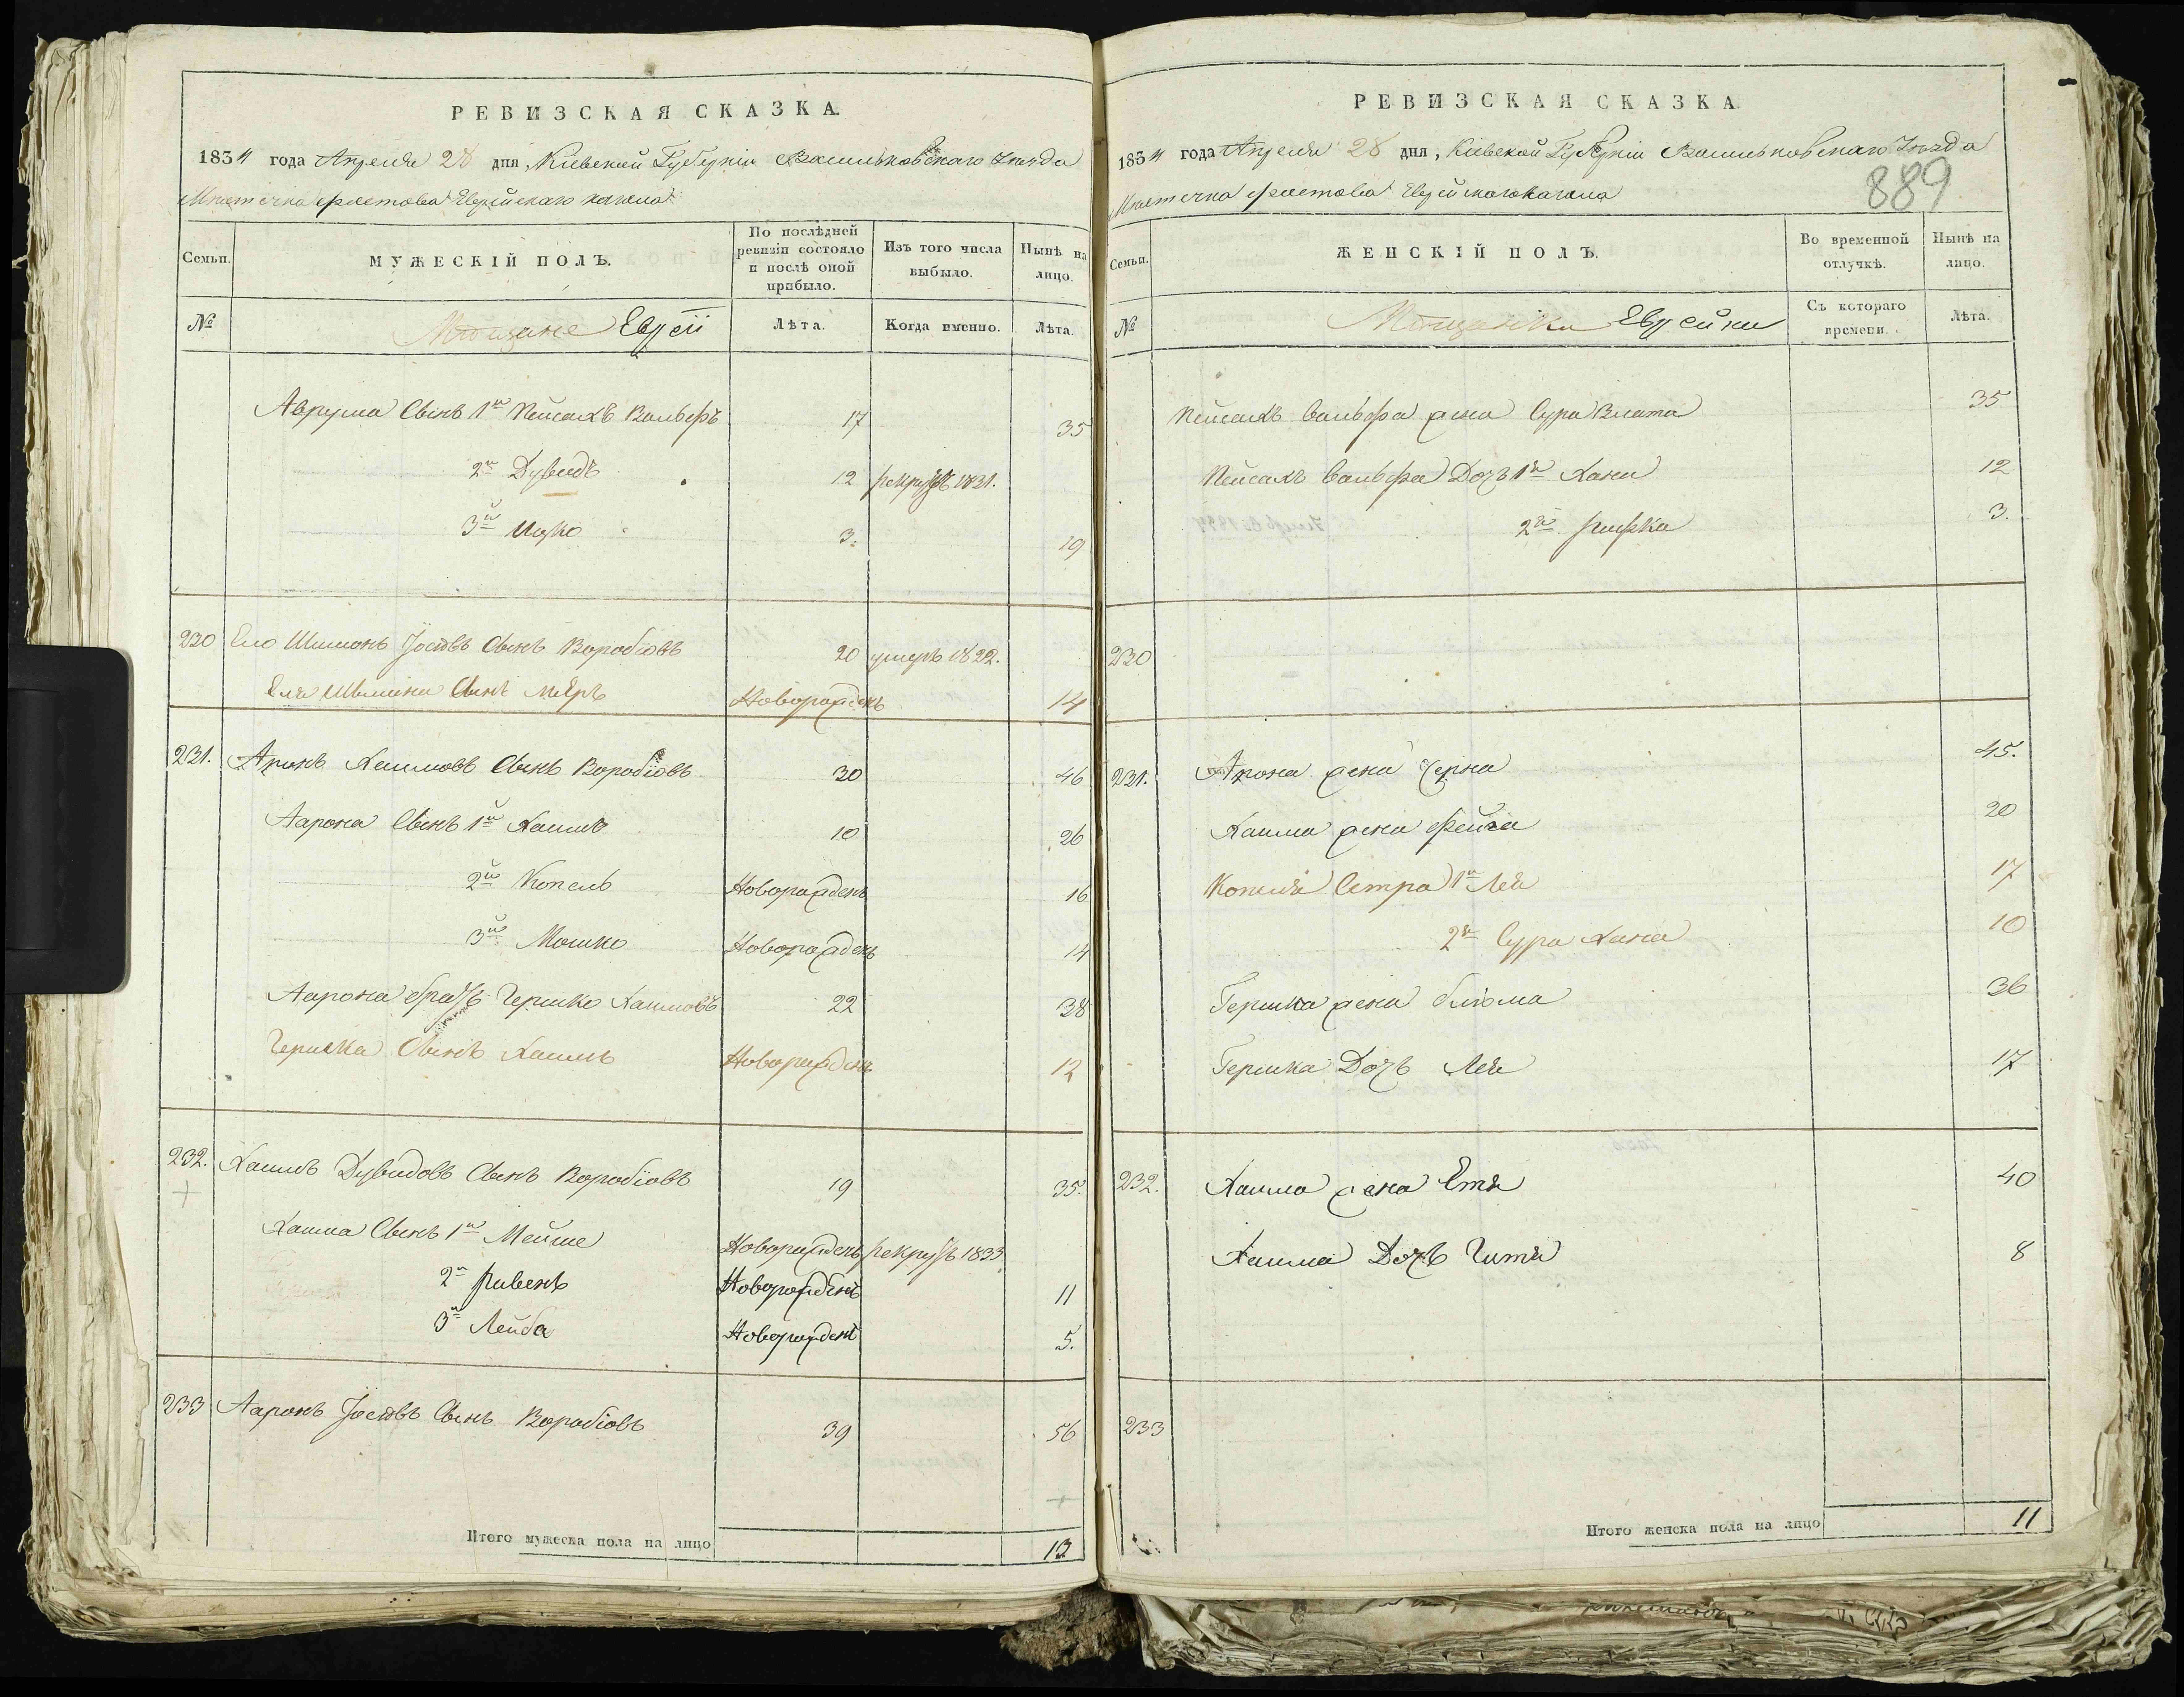 РЕВИЗСКАЯ СКАЗКА.
1834 года Апреля 28 дня, Кіевской Губерніи Васильковскаго Уѣзда
Мѣстечка Фастова Еврейскаго кагала
Семьи.
МУЖЕСКІЙ ПОЛЪ.
По послѣдней ревизіи состояло и послѣ оной прибыло.
Изъ того числа выбыло.
Нынѣ на лицо.
№
Мѣщане Евреи
Лѣта.
Когда именно.
Лѣта.
Аврума Сынъ 1й Пейсахъ Вольфъ 17 35
2й Дувидъ 12 рекрутъ 1831.
3й Ицко 3. 19
230 Ело Шимонъ Іосіовъ Сынъ Воробіовъ 20 умеръ 1822.
Еля Шимина Сынъ Мееръ Новорожденъ 14
231. Аронъ Хаимовъ Сынъ Воробіовъ 30 46
Аарона Сынъ 1й Хаимъ 10 26
2й Копель Новорожденъ 16
3й Мошко Новорожденъ 14
Аарона братъ Гершко Хаимовъ 22 38
Гершка Сынъ Хаимъ Новорожденъ 12
232. Хаимъ Дувидовъ Сынъ Воробіовъ 19 35.
Хаима Сынъ 1й Мейше Новорожденъ рекрутъ 1833
2й Ривенъ Новорожденъ 11
3й Лейба Новорожденъ 5.
233 Ааронъ Іосіовъ Сынъ Воробіовъ 39 56
Итого мужеска пола на лицо 13
РЕВИЗСКАЯ СКАЗКА.
889
1834 года Апреля 28 дня, Кіевской Губерніи Васильковскаго Уѣзда
Мѣстечка Фастова Еврейскаго кагала
Семьи.
ЖЕНСКІЙ ПОЛЪ.
Во временной отлучкѣ.
Нынѣ на лицо.
№
Мѣщанки Еврейки
Съ котораго времени.
Лѣта.
Пейсахъ Вольфа жена Сура Злата 35
Пейсахъ Вольфа Дочь 1я Хана 12
2я Рифка 3.
230
231. Арона жена Черна 45.
Хаима жена Фейга 20
Копеля Сетра 1я Лея 17
2я Сура Хана 10
Гершка жена Блюма 36
Гершка Дочь Лея 17
232. Хаима жена Етя 40
Хаима Дочь Гитя 8
233
Итого женска пола на лицо 11